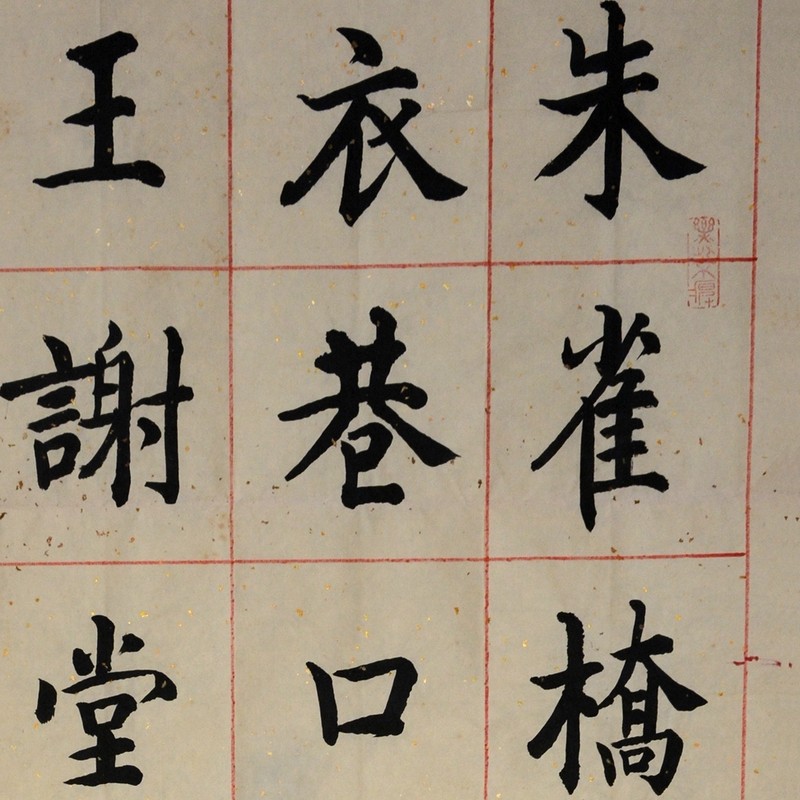 朱雀橋
衣巷口
王謝堂